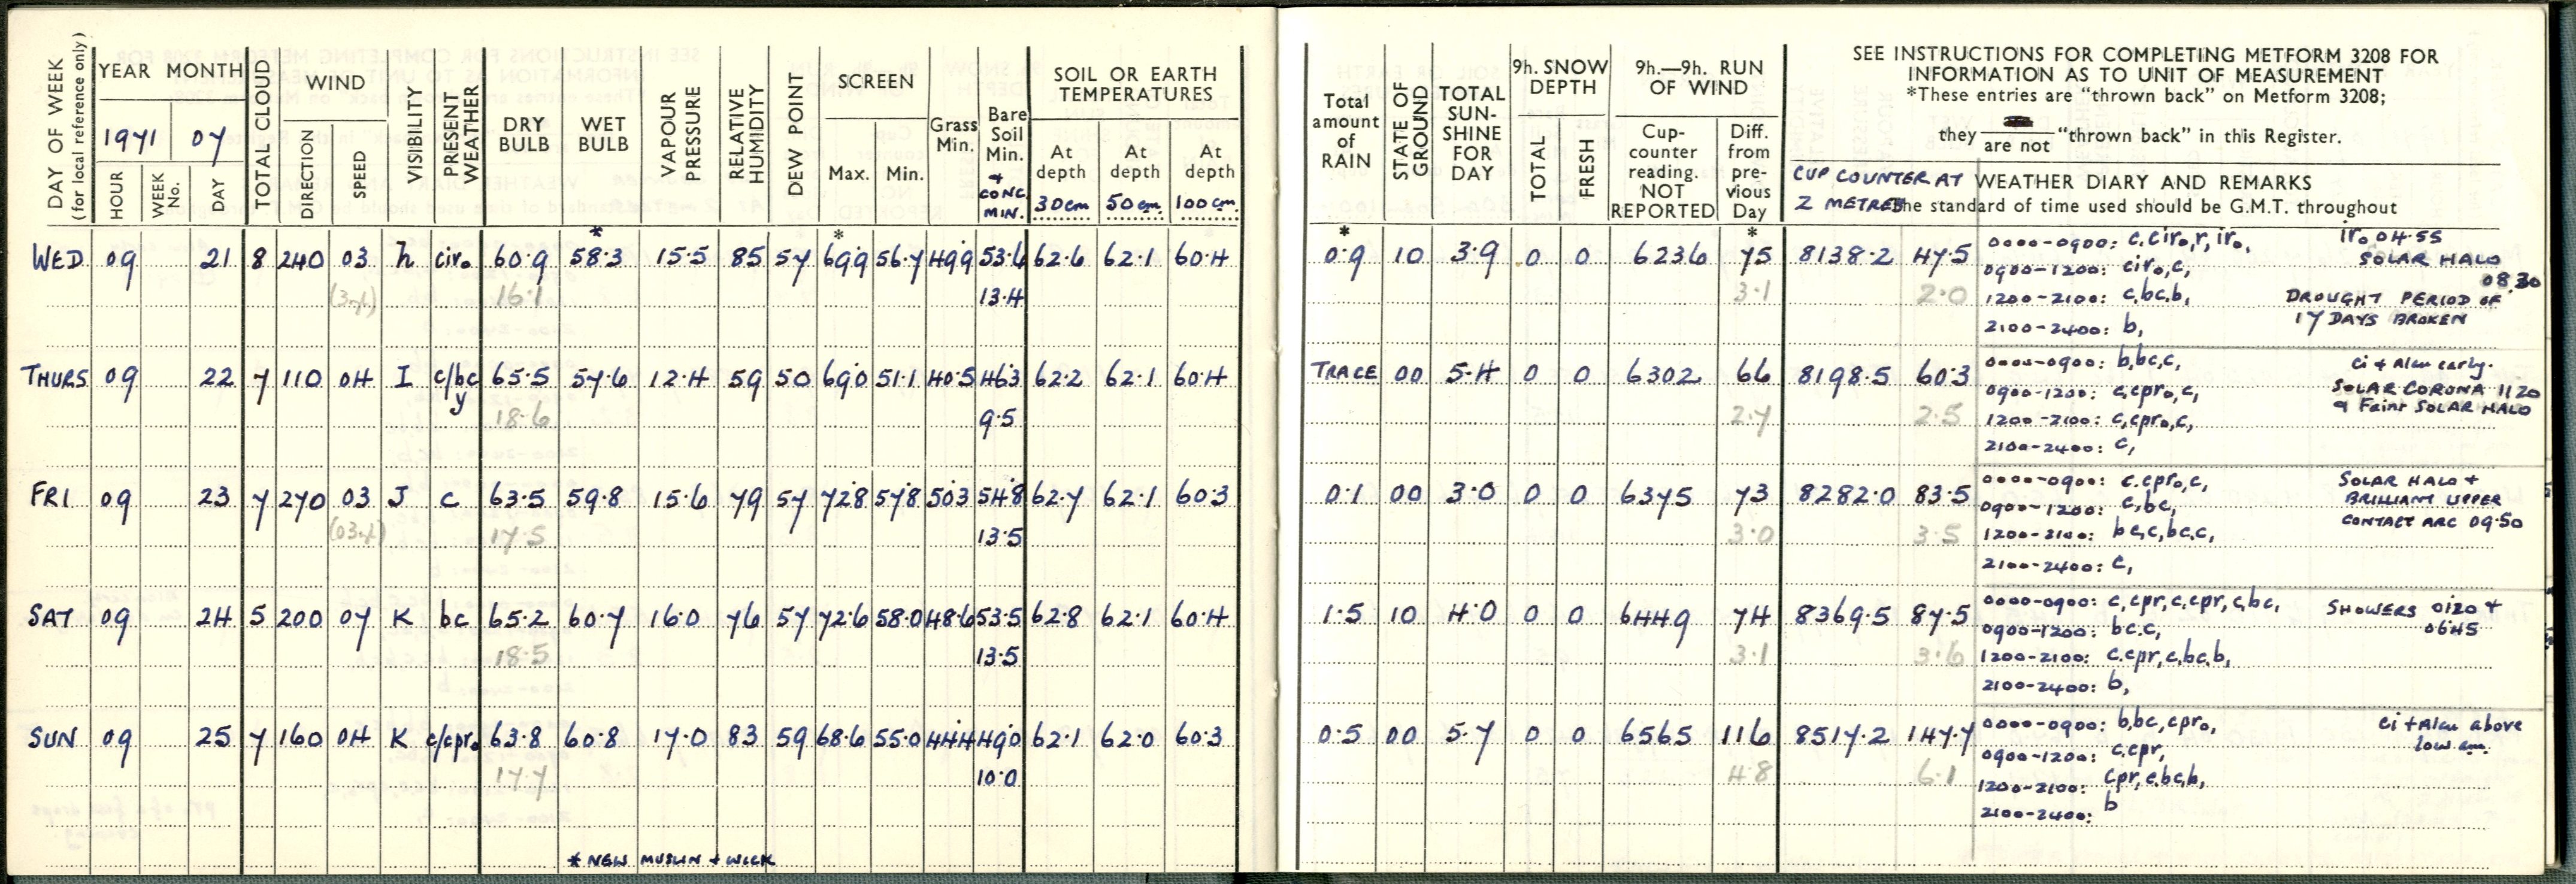 DAY OF WEEK (for local reference only)
YEAR MONTH
1971 07
HOUR WEEK No. DAY
TOTAL CLOUD
WIND
DIRECTION SPEED
VISIBILITY
PRESENT WEATHER
DRY BULB
WET BULB
VAPOUR PRESSURE
RELATIVE HUMIDITY
DEW POINT
SCREEN
Max. Min.
Grass Min.
Bare Soil Min. + CONC. MIN.
SOIL OR EARTH TEMPERATURES
At depth 30cm
At depth 50cm
At depth 100cm
Total amount of RAIN
STATE OF GROUND
TOTAL SUN-SHINE FOR DAY
9h. SNOW DEPTH
TOTAL FRESH
9h.—9h. RUN OF WIND
Cup-counter reading. NOT REPORTED
Diff. from pre-vious Day
SEE INSTRUCTIONS FOR COMPLETING METFORM 3208 FOR
INFORMATION AS TO UNIT OF MEASUREMENT
*These entries are "thrown back" on Metform 3208;
they are not "thrown back" in this Register.
CUP COUNTER AT 2 METRES
WEATHER DIARY AND REMARKS
The standard of time used should be G.M.T. throughout
* * * *
WED 09 21 8 240 03 h cir₀ 60.9 58.3 15.5 85 57 69.9 56.7 49.9 53.6 62.6 62.1 60.4 0.9 10 3.9 0 0 6236 75 8138.2 47.5
(3mph) 16.1 13.4 3.1 2.0
0000-0900: c,cir₀,r,ir₀,
ir₀ 04.55
0900-1200: cir₀,c,
SOLAR HALO 08.30
1200-2100: c,bc,b,
DROUGHT PERIOD OF
2100-2400: b,
17 DAYS BROKEN
THURS 09 22 7 110 04 I c/bc y 65.5 57.6 12.4 59 50 69.0 51.1 40.5 46.3 62.2 62.1 60.4 TRACE 00 5.4 0 0 6302 66 8198.5 60.3
18.6 9.5 2.7 2.5
0000-0900: b,bc,c,
Ci + Alcu early.
0900-1200: c,cpr₀,c,
SOLAR CORONA 1120
1200-2100: c,cpr₀,c,
& Faint SOLAR HALO
2100-2400: c,
FRI 09 23 7 270 03 J c 63.5 59.8 15.6 79 57 72.8 57.8 50.3 54.8 62.7 62.1 60.3 0.1 00 3.0 0 0 6375 73 8282.0 83.5
(03mph) 17.5 13.5 3.0 3.5
0000-0900: c.cpr₀,c,
SOLAR HALO +
0900-1200: c,bc,
BRILLIANT UPPER
CONTACT ARC 09.50
1200-2100: bc,c,bc,c,
2100-2400: c,
SAT 09 24 5 200 07 K bc 65.2 60.7 16.0 76 57 72.6 58.0 48.6 53.5 62.8 62.1 60.4 1.5 10 4.0 0 0 6449 74 8369.5 87.5
18.5 13.5 3.1 3.6
0000-0900: c,cpr,c,cpr,c,bc,
SHOWERS 0120 +
0645
0900-1200: bc.c,
1200-2100: c.cpr,c,bc,b,
2100-2400: b,
SUN 09 25 7 160 04 K c/cpr₀ 63.8 60.8 17.0 83 59 68.6 55.0 44.4 49.0 62.1 62.0 60.3 0.5 00 5.7 0 0 6565 116 8517.2 147.7
17.7 10.0 4.8 6.1
0000-0900: b,bc,cpr₀,
Ci + Alcu above
low cu.
0900-1200: c,cpr,
1200-2100: cpr,c,bc,b,
2100-2400: b
* NEW MUSLIN + WICK